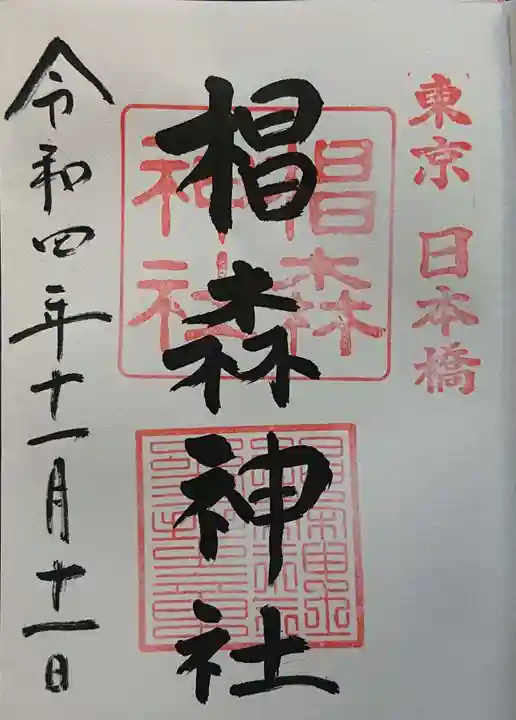 東京 日本橋
椙森神社
椙森
神社
令和四年十一月十一日